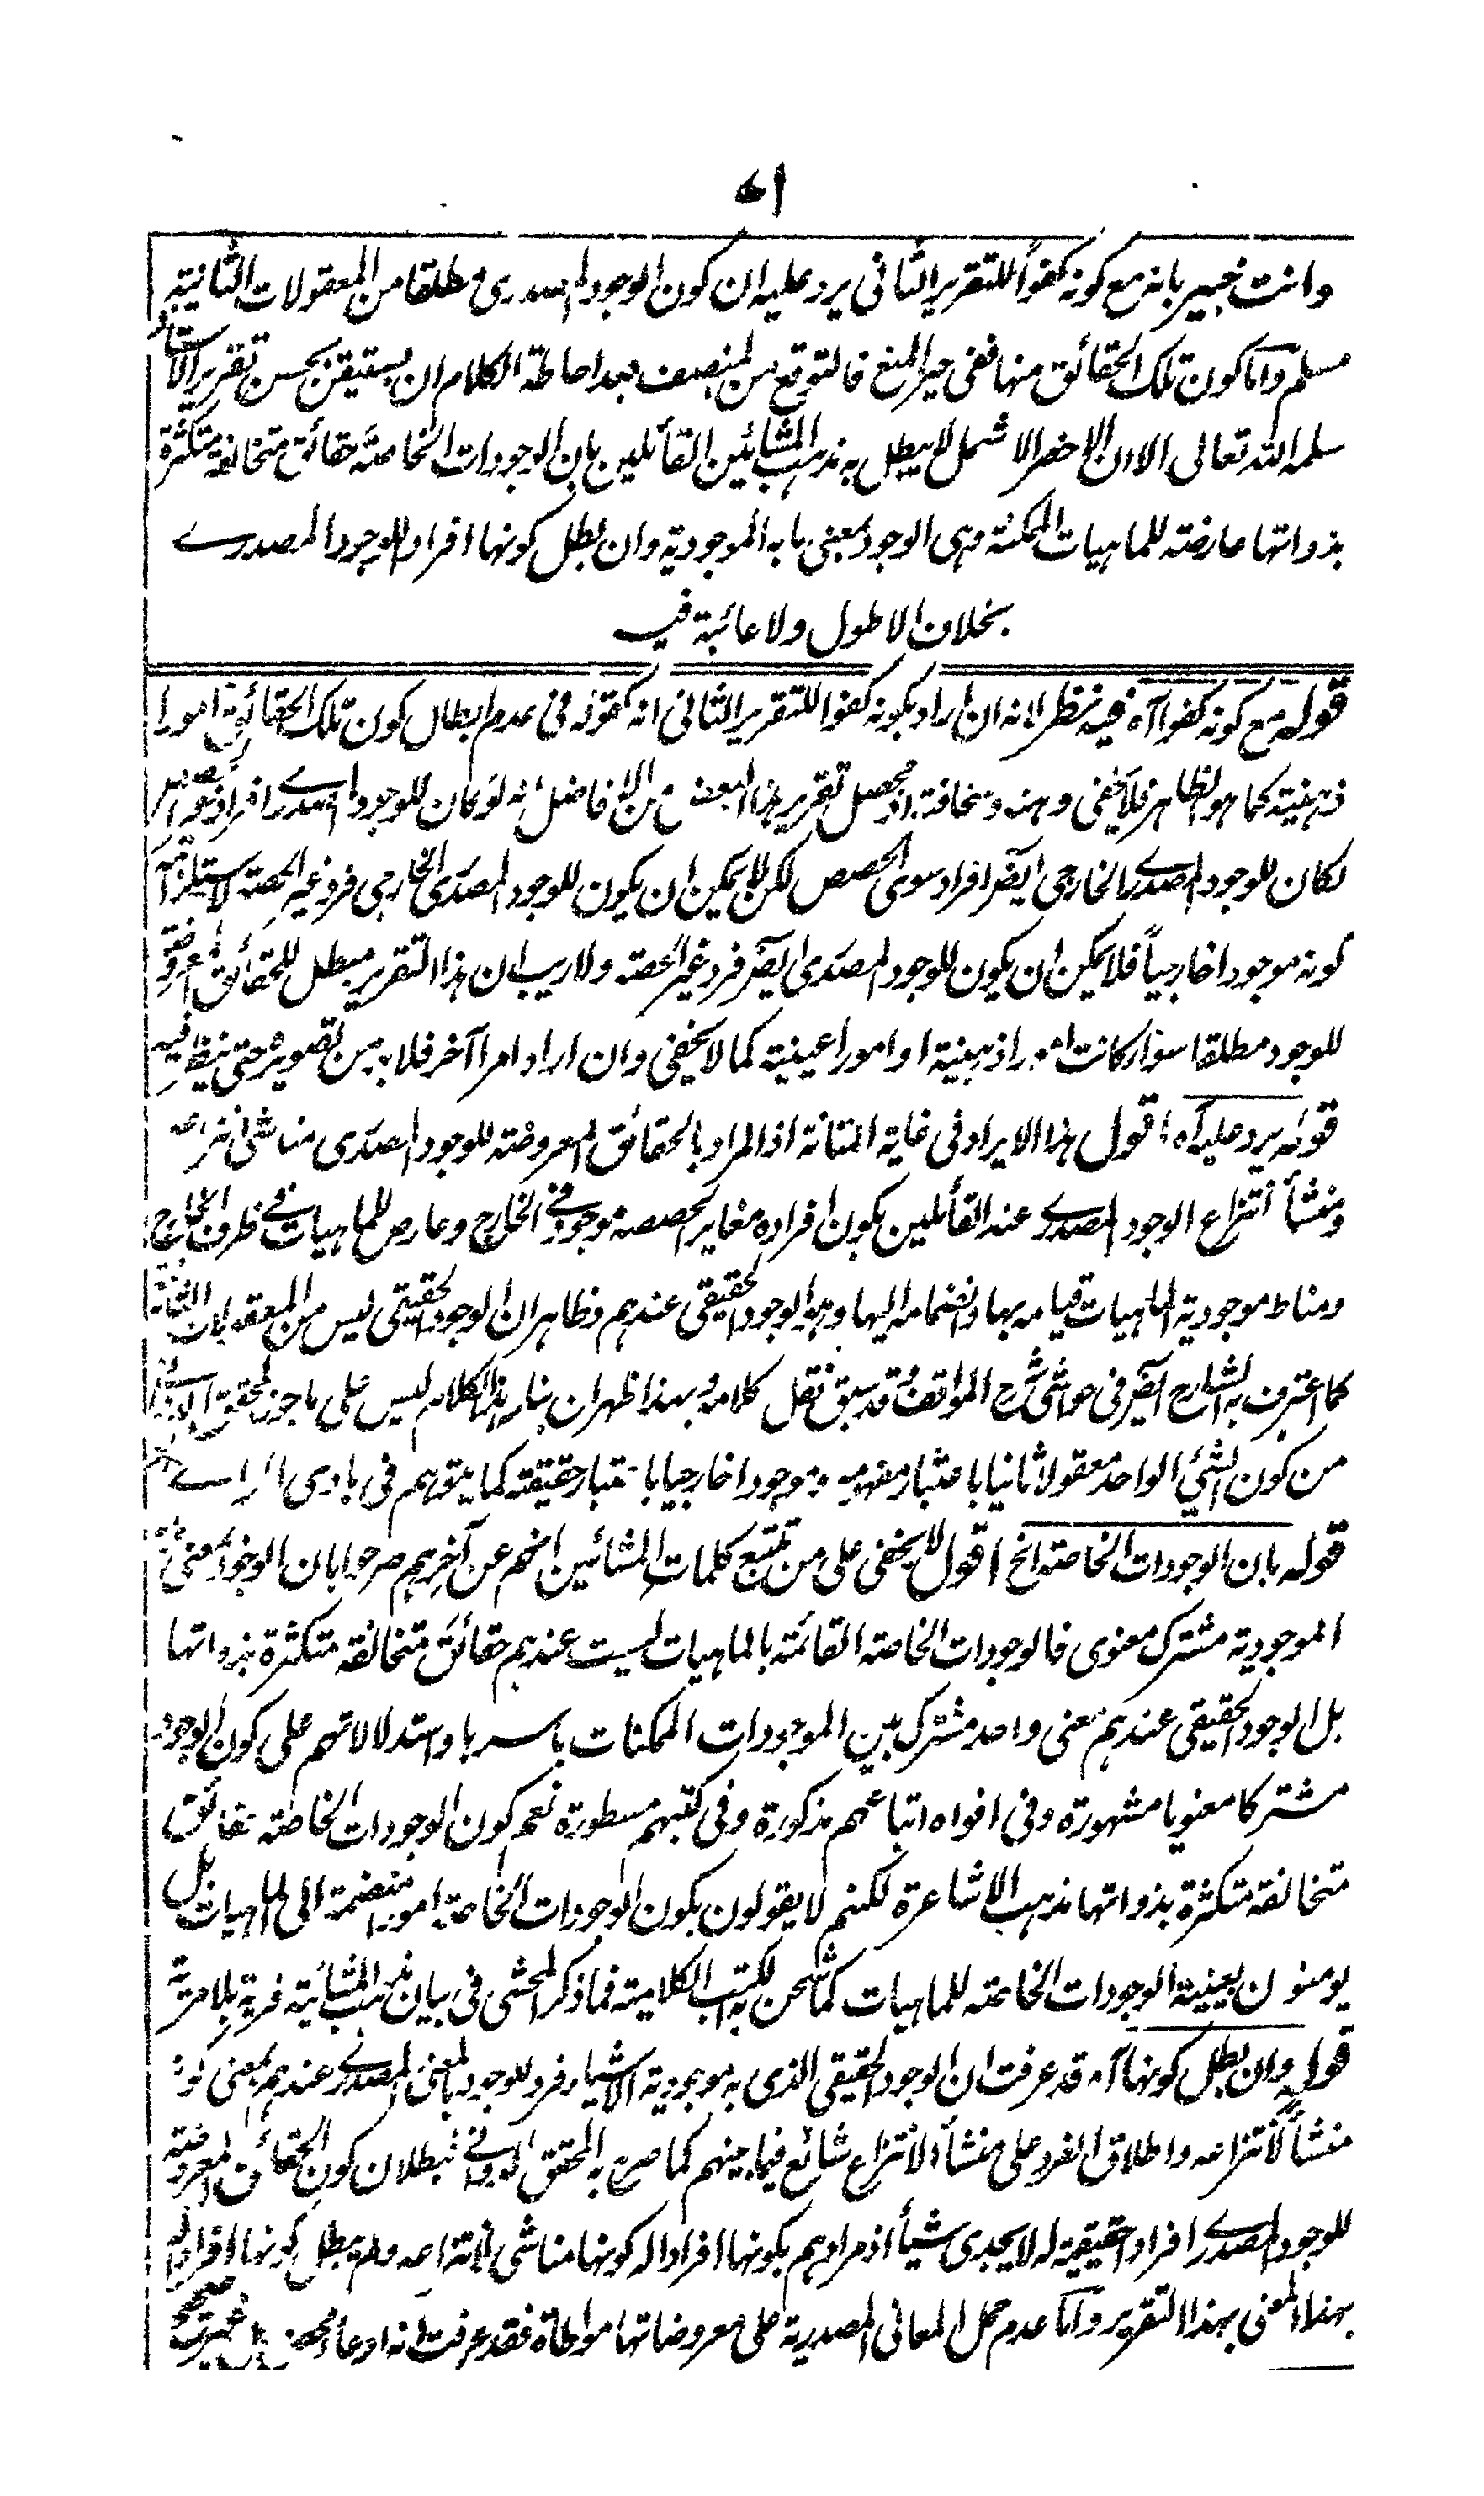 وانت خبير بانه مع كونه كفوا للتقرير الثانى يرد عليه ان كون الوجود المصدرى مطلقا من المعقولات الثانية
مسلم واما كون تلك الحقائق منها ففى حيز المنع فالمتوقع من المنصف بعد احاطة الكلام ان يستيقن بحسن تقرير الاستاذ
سلمه الله تعالى الا ان الاخصر الاشمل لا يبطل به مذهب المشائين القائلين بان الوجودات الخاصة حقائق متخالفة متكثرة
بذواتها عارضة للماهيات الممكنة وهى الوجود بمعنى ما به الموجودية وان بطل كونها افراد اللوجود المصدرى
بخلاف الاطول ولا عائبة فيه
قوله مع كونه كفوا آه فيه نظر لانه ان اراد بكونه كفوا للتقرير الثانى انه كفؤ له فى عدم ابطال كون تلك الحقائق امورا
ذهنية كما هو الظاهر فلا يخفى وهنه وسخافته اذ محصل تقرير هذا البعض من الافاضل انه لو كان للوجود المصدرى افراد
لكان للوجود المصدرى الخارجى ايضا افراد سوى الحصص لكن لا يمكن ان يكون للوجود المصدرى الخارجى فرد غير الحصة لاستلزام
كونه موجودا خارجيا فلا يمكن ان يكون للوجود المصدرى ايضا فرد غير الحصة ولا ريب ان هذا التقرير مبطل للحقائق المعروضة
للوجود مطلقا سواء كانت امورا ذهنية او امورا عينية كما لا يخفى وان اراد امرا آخر فلا بد من تصويره حتى ينظر فيه
قوله يرد عليه آه اقول هذا الايراد فى غاية المتانة اذ المراد بالحقائق المعروضة للوجود المصدرى مناشى انتزاعه
ومنشأ انتزاع الوجود المصدرى عند القائلين بكون افراده مغايرة لحصصه موجود فى الخارج وعارض للماهيات فى ظرف الخارج
ومناط موجودية الماهيات قيامه بها وانضمامه اليها وهو الوجود الحقيقى عندهم وظاهر ان الوجود الحقيقى ليس من المعقولات الثانية
كما اعترف به الشارح ايضا فى حواشى شرح المواقف وقد سبق نقل كلامه وبهذا ظهر ان بناء هذا الكلام ليس على ما جوزه المحقق الدوانى
من كون الشئ الواحد معقولا ثانيا باعتبار مفهومه وموجودا خارجيا باعتبار حقيقته كما يتوهم فى بادى الراى
قوله بان الوجودات الخاصة الخ اقول لا يخفى على من تتبع كلمات المشائين انهم عن آخرهم صرحوا بان الوجود بمعنى ما به
الموجودية مشترك معنوى فالوجودات الخاصة القائمة بالماهيات ليست عندهم حقائق متخالفة متكثرة بذواتها
بل الوجود الحقيقى عندهم معنى واحد مشترك بين الموجودات الممكنات باسرها واستدلالاتهم على كون الوجود
مشتركا معنويا مشهورة وفى افواه اتباعهم مذكورة وفى كتبهم مسطورة نعم كون الوجودات الخاصة حقائق
متخالفة متكثرة بذواتها مذهب الاشاعرة لكنهم لا يقولون بكون الوجودات الخاصة امورا منضمة الى الماهيات بل
يومنون بعينية الوجودات الخاصة للماهيات كما شحن به الكتب الكلامية فما ذكر المحشى فى بيان مذهب المشائية فرية بلا مرية
قوله وان بطل كونها آه قد عرفت ان الوجود الحقيقى الذى به موجودية الاشياء فرد للوجود بالمعنى المصدرى عندهم بمعنى كونه
منشأ لانتزاعه واطلاق الفرد على منشأ الانتزاع شائع فيما بينهم كما صرح به المحقق الدوانى فبطلان كون الحقائق المعروضة
للوجود المصدرى افرادا حقيقية له لا يجدى شيأ اذ مرادهم بكونها افرادا له كونها مناشى لانتزاعه ولم يبطل كونها افرادا له
بهذا المعنى بهذا التقرير واما عدم حمل المعانى المصدرية على معروضاتها مواطاة فقد عرفت انه ادعاء محض